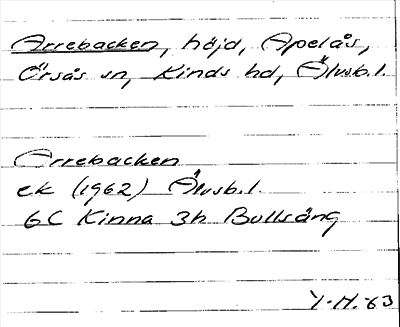 Arrebacken, höjd, Apelås,
Örsås sn, Kinds hd, Älvsb.l.
Arrebacken
ek (1962) Älvsb.l.
6C Kinna 3h Bullsäng
Y.H.-63